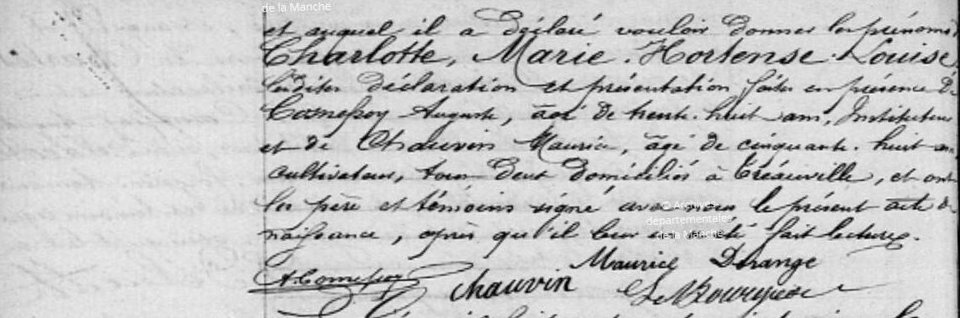 de la Manche
et auquel il a déclaré vouloir donner les prénoms
Charlotte, Marie. Hortense. Louise.
Lesdites déclaration et présentation faites en présence de
Auguste, âgé de trente-huit ans, Instituteur
et de Chauvin Maurice, âgé de cinquante-huit ans
cultivateur, tous deux domiciliés à Créauville, et ont
les père et témoins signé avec nous le présent acte de
naissance, après qu'il leur en a été fait lecture.
© Archives
départementales
de la Manche
Maurice Dorange
Chauvin